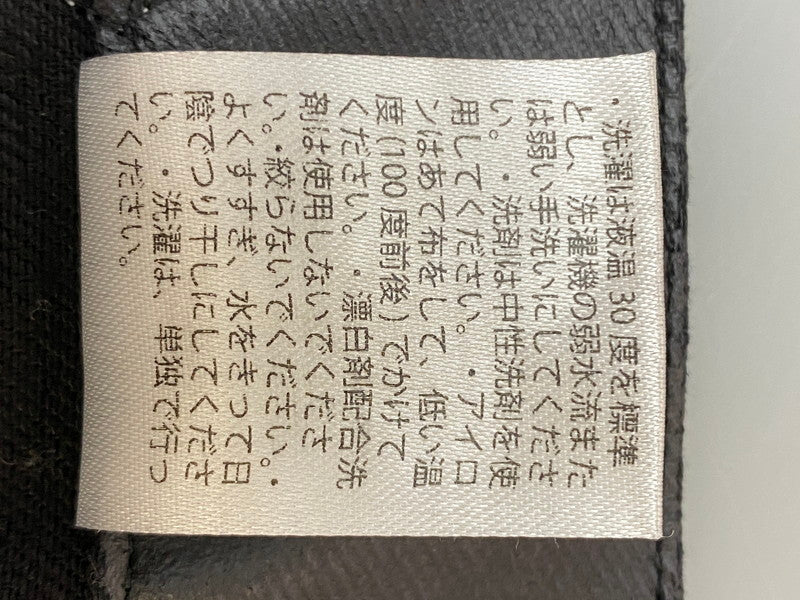 ・洗濯は液温 30 度を標準
とし、洗濯機の弱水流また
は弱い手洗いにしてくださ
い。・洗剤は中性洗剤を使
用してください。・アイロ
ンはあて布をして、低い温
度 (100 度前後 ) でかけて
ください。・漂白剤配合洗
剤は使用しないでくださ
い。・絞らないでください。・
よくすすぎ、水をきって日
陰でつり干しにしてくださ
い。・洗濯は、単独で行っ
てください。